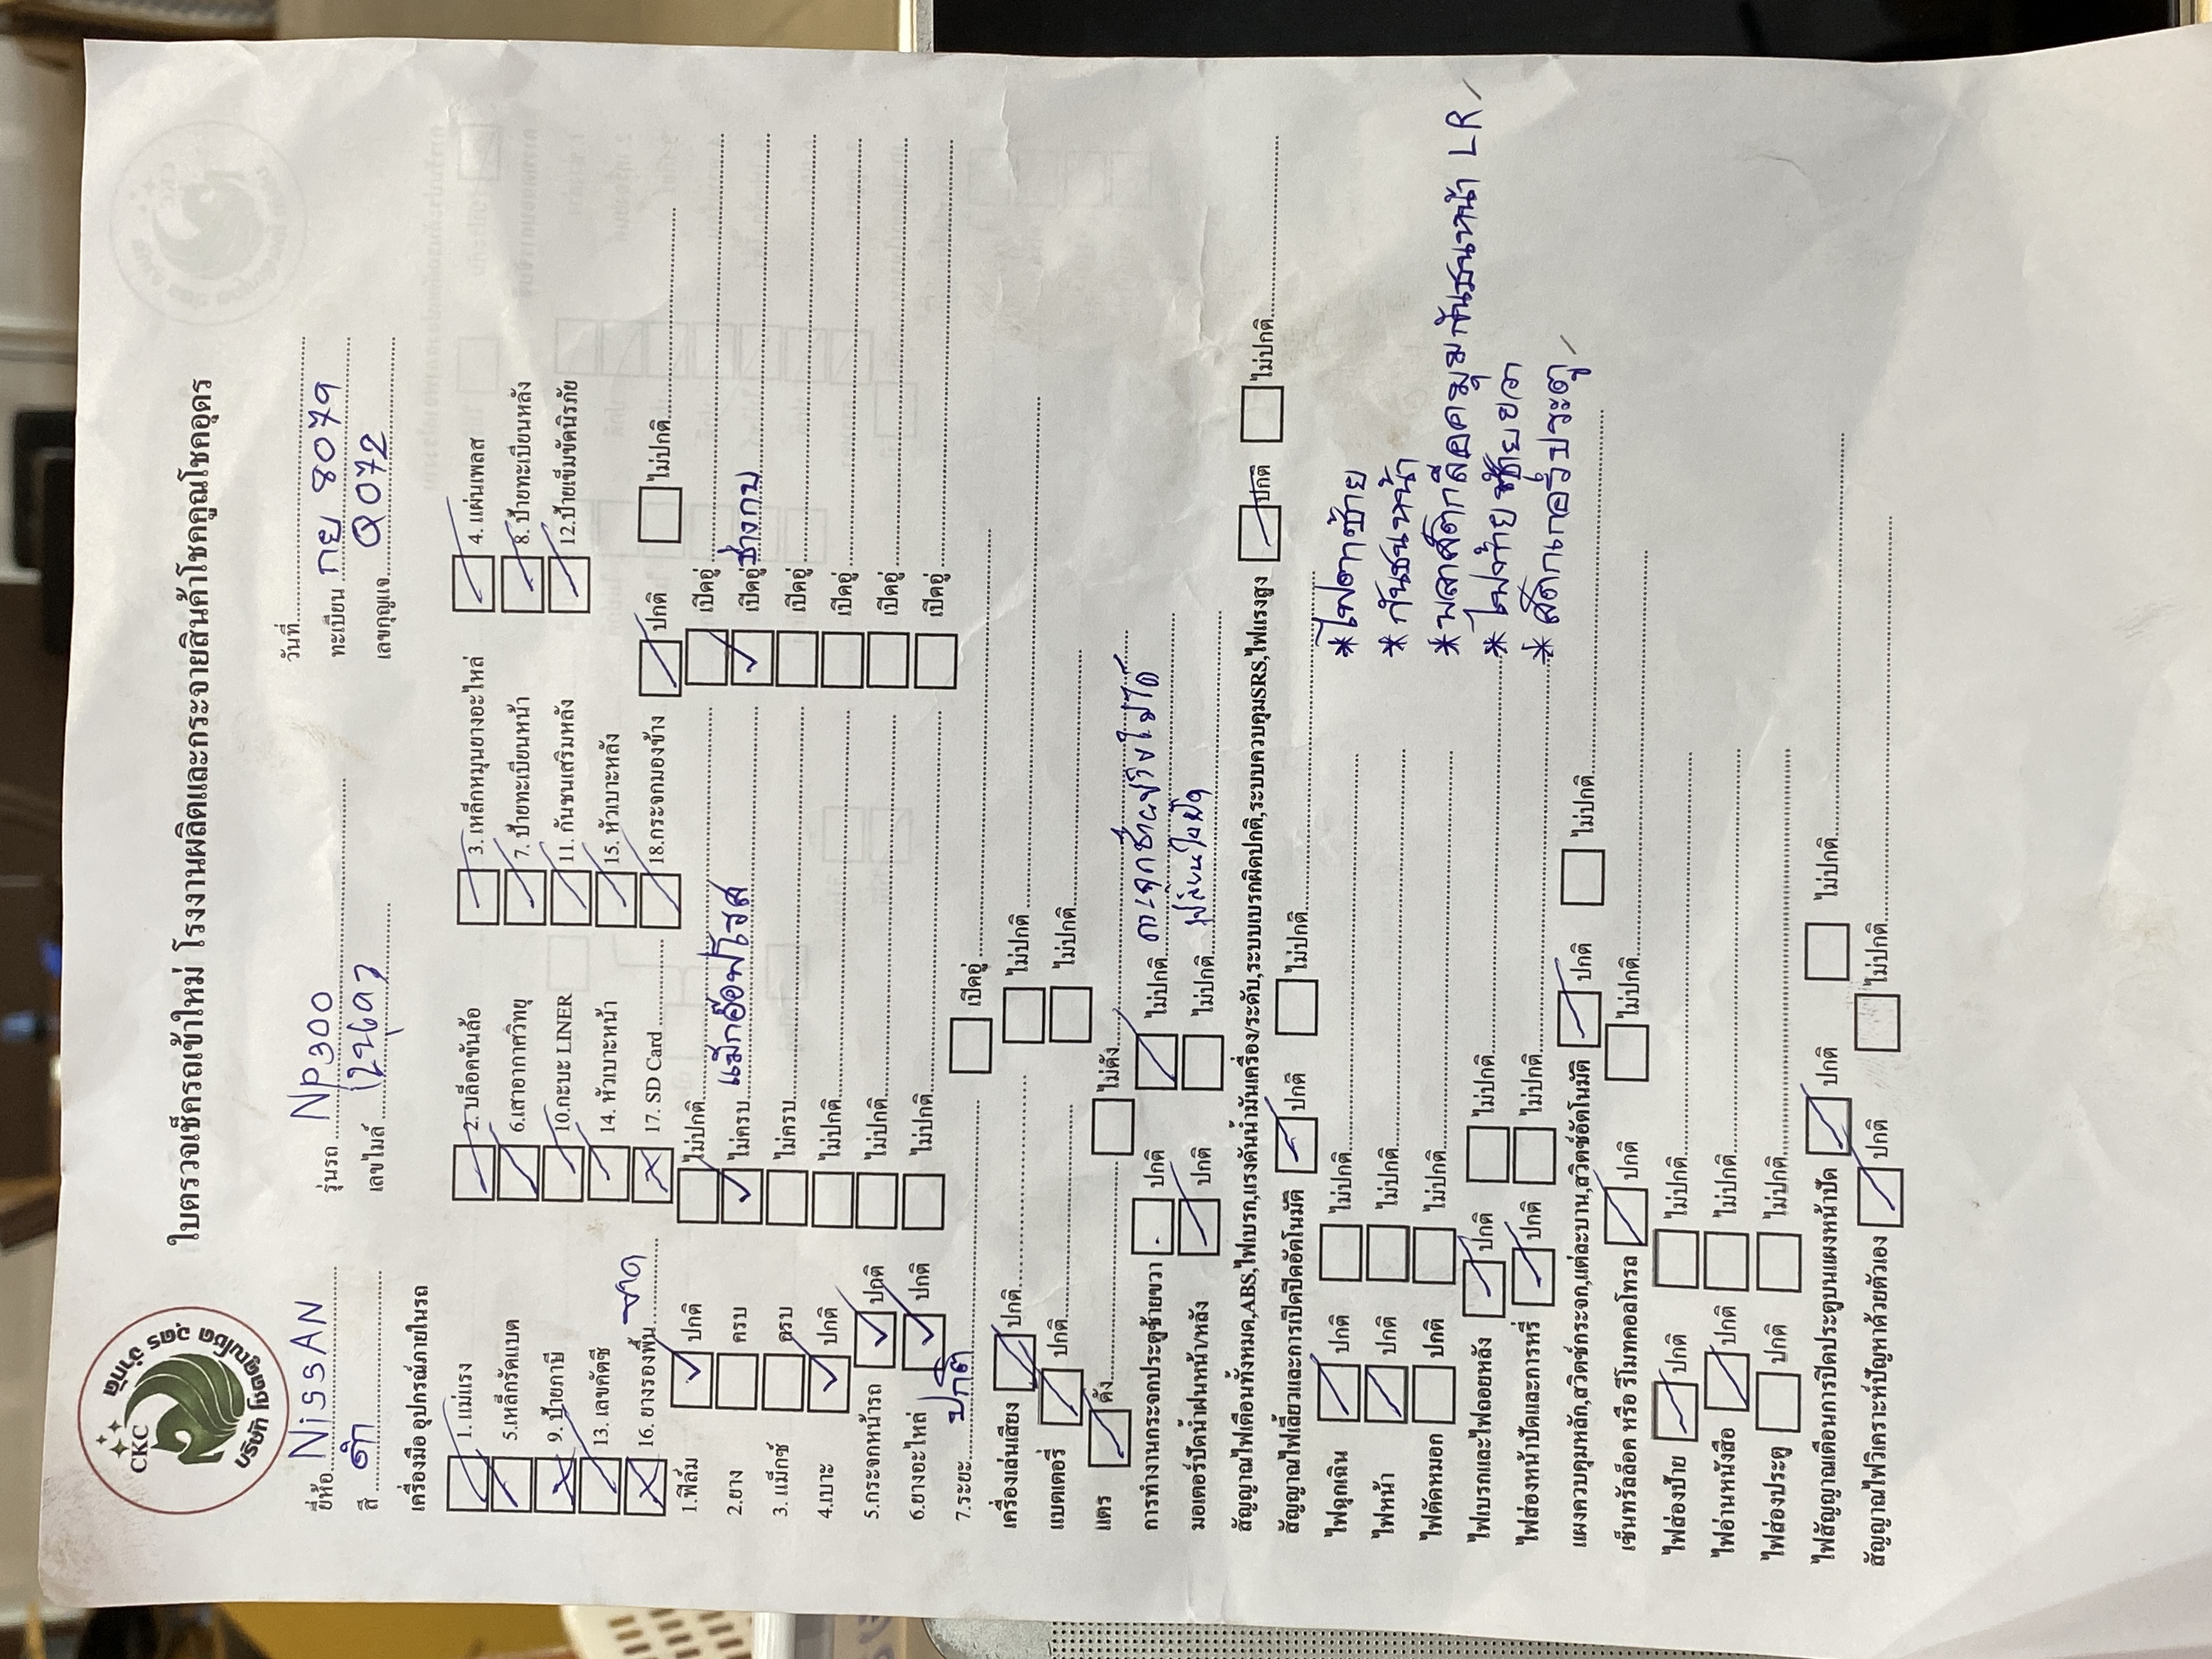 บริษัท โชคคูณโชค อุดร จำกัด
CKC
ใบตรวจเช็ครถเข้าใหม่ โรงงานผลิตและกระจายสินค้าโชคคูณโชคอุดร
วันที่
ยี่ห้อ NiSSAN รุ่นรถ NP300 ทะเบียน กย 8079
สี ดำ เลขไมล์ เลขกุญแจ Q072
เครื่องมือ อุปกรณ์ภายในรถ
1. แม่แรง 2. บล็อคขันล้อ 3. เหล็กหมุนยางอะไหล่ 4. แผ่นเพลส
5.เหล็กรัดแบต 6.เสาอากาศวิทยุ 7. ป้ายทะเบียนหน้า 8. ป้ายทะเบียนหลัง
9. ป้ายภาษี 10.กะบะ LINER 11. กันชนเสริมหลัง 12.ป้ายเข็มขัดนิรภัย
13. เลขคัดซี 14. หัวเบาะหน้า 15. หัวเบาะหลัง
16. ยางรองพื้น ขาด 17. SD Card 18.กระจกมองข้าง ปกติ ไม่ปกติ
1.ฟิล์ม ปกติ ไม่ปกติ เบิคอู่
2.ยาง ครบ ไม่ครบ แม็กอ๊อฟโรด เบิคอู่ ช่างกบ
3. แม็กซ์ ครบ ไม่ครบ เบิคอู่
4.เบาะ ปกติ ไม่ปกติ เบิคอู่
5.กระจกหน้ารถ ปกติ ไม่ปกติ เบิคอู่
6.ยางอะไหล่ ปกติ ไม่ปกติ เบิคอู่
7.ระยะ ปกติ เบิคอู่
เครื่องเล่นเสียง ปกติ ไม่ปกติ
แบตเตอรี่ ปกติ ไม่ปกติ
แตร ดัง ไม่ดัง
การทำงานกระจกประตูซ้ายขวา ปกติ ไม่ปกติ
มอเตอร์ปัดน้ำฝนหน้า/หลัง ปกติ ไม่ปกติ เปลี่ยนใบปัด
สัญญาณไฟเตือนทั้งหมด,ABS,ไฟเบรก,แรงดันน้ำมันเครื่อง/ระดับ,ระบบเบรกผิดปกติ,ระบบควบคุมSRS,ไฟแรงสูง ปกติ ไม่ปกติ
สัญญาณไฟเลี้ยวและการเปิดปิดอัตโนมัติ ปกติ ไม่ปกติ
ไฟฉุกเฉิน ปกติ ไม่ปกติ * ไฟตาซ้าย
ไฟหน้า ปกติ ไม่ปกติ * กันชนหน้า
ไฟตัดหมอก ปกติ ไม่ปกติ * พลาสติกล๊อคมุมกันชนหน้า LR
ไฟเบรกและไฟถอยหลัง ปกติ ไม่ปกติ * ไฟท้าย ซ้าย ขวา
ไฟส่องหน้าปัดและการหรี่ ปกติ ไม่ปกติ * สติกเกอร์ประตู
แผงควบคุมหลัก,สวิตช์กระจก,แต่ละบาน,สวิตช์อัตโนมัติ ปกติ ไม่ปกติ
เซ็นทรัลล็อค หรือ รีโมทคอลโทรล ปกติ ไม่ปกติ
ไฟส่องป้าย ปกติ ไม่ปกติ
ไฟอ่านหนังสือ ปกติ ไม่ปกติ
ไฟส่องประตู ปกติ ไม่ปกติ
ไฟสัญญาณเตือนการปิดประตูบนแผงหน้าปัด ปกติ ไม่ปกติ
สัญญาณไฟวิเคราะห์ปัญหาด้วยตัวเอง ปกติ ไม่ปกติ